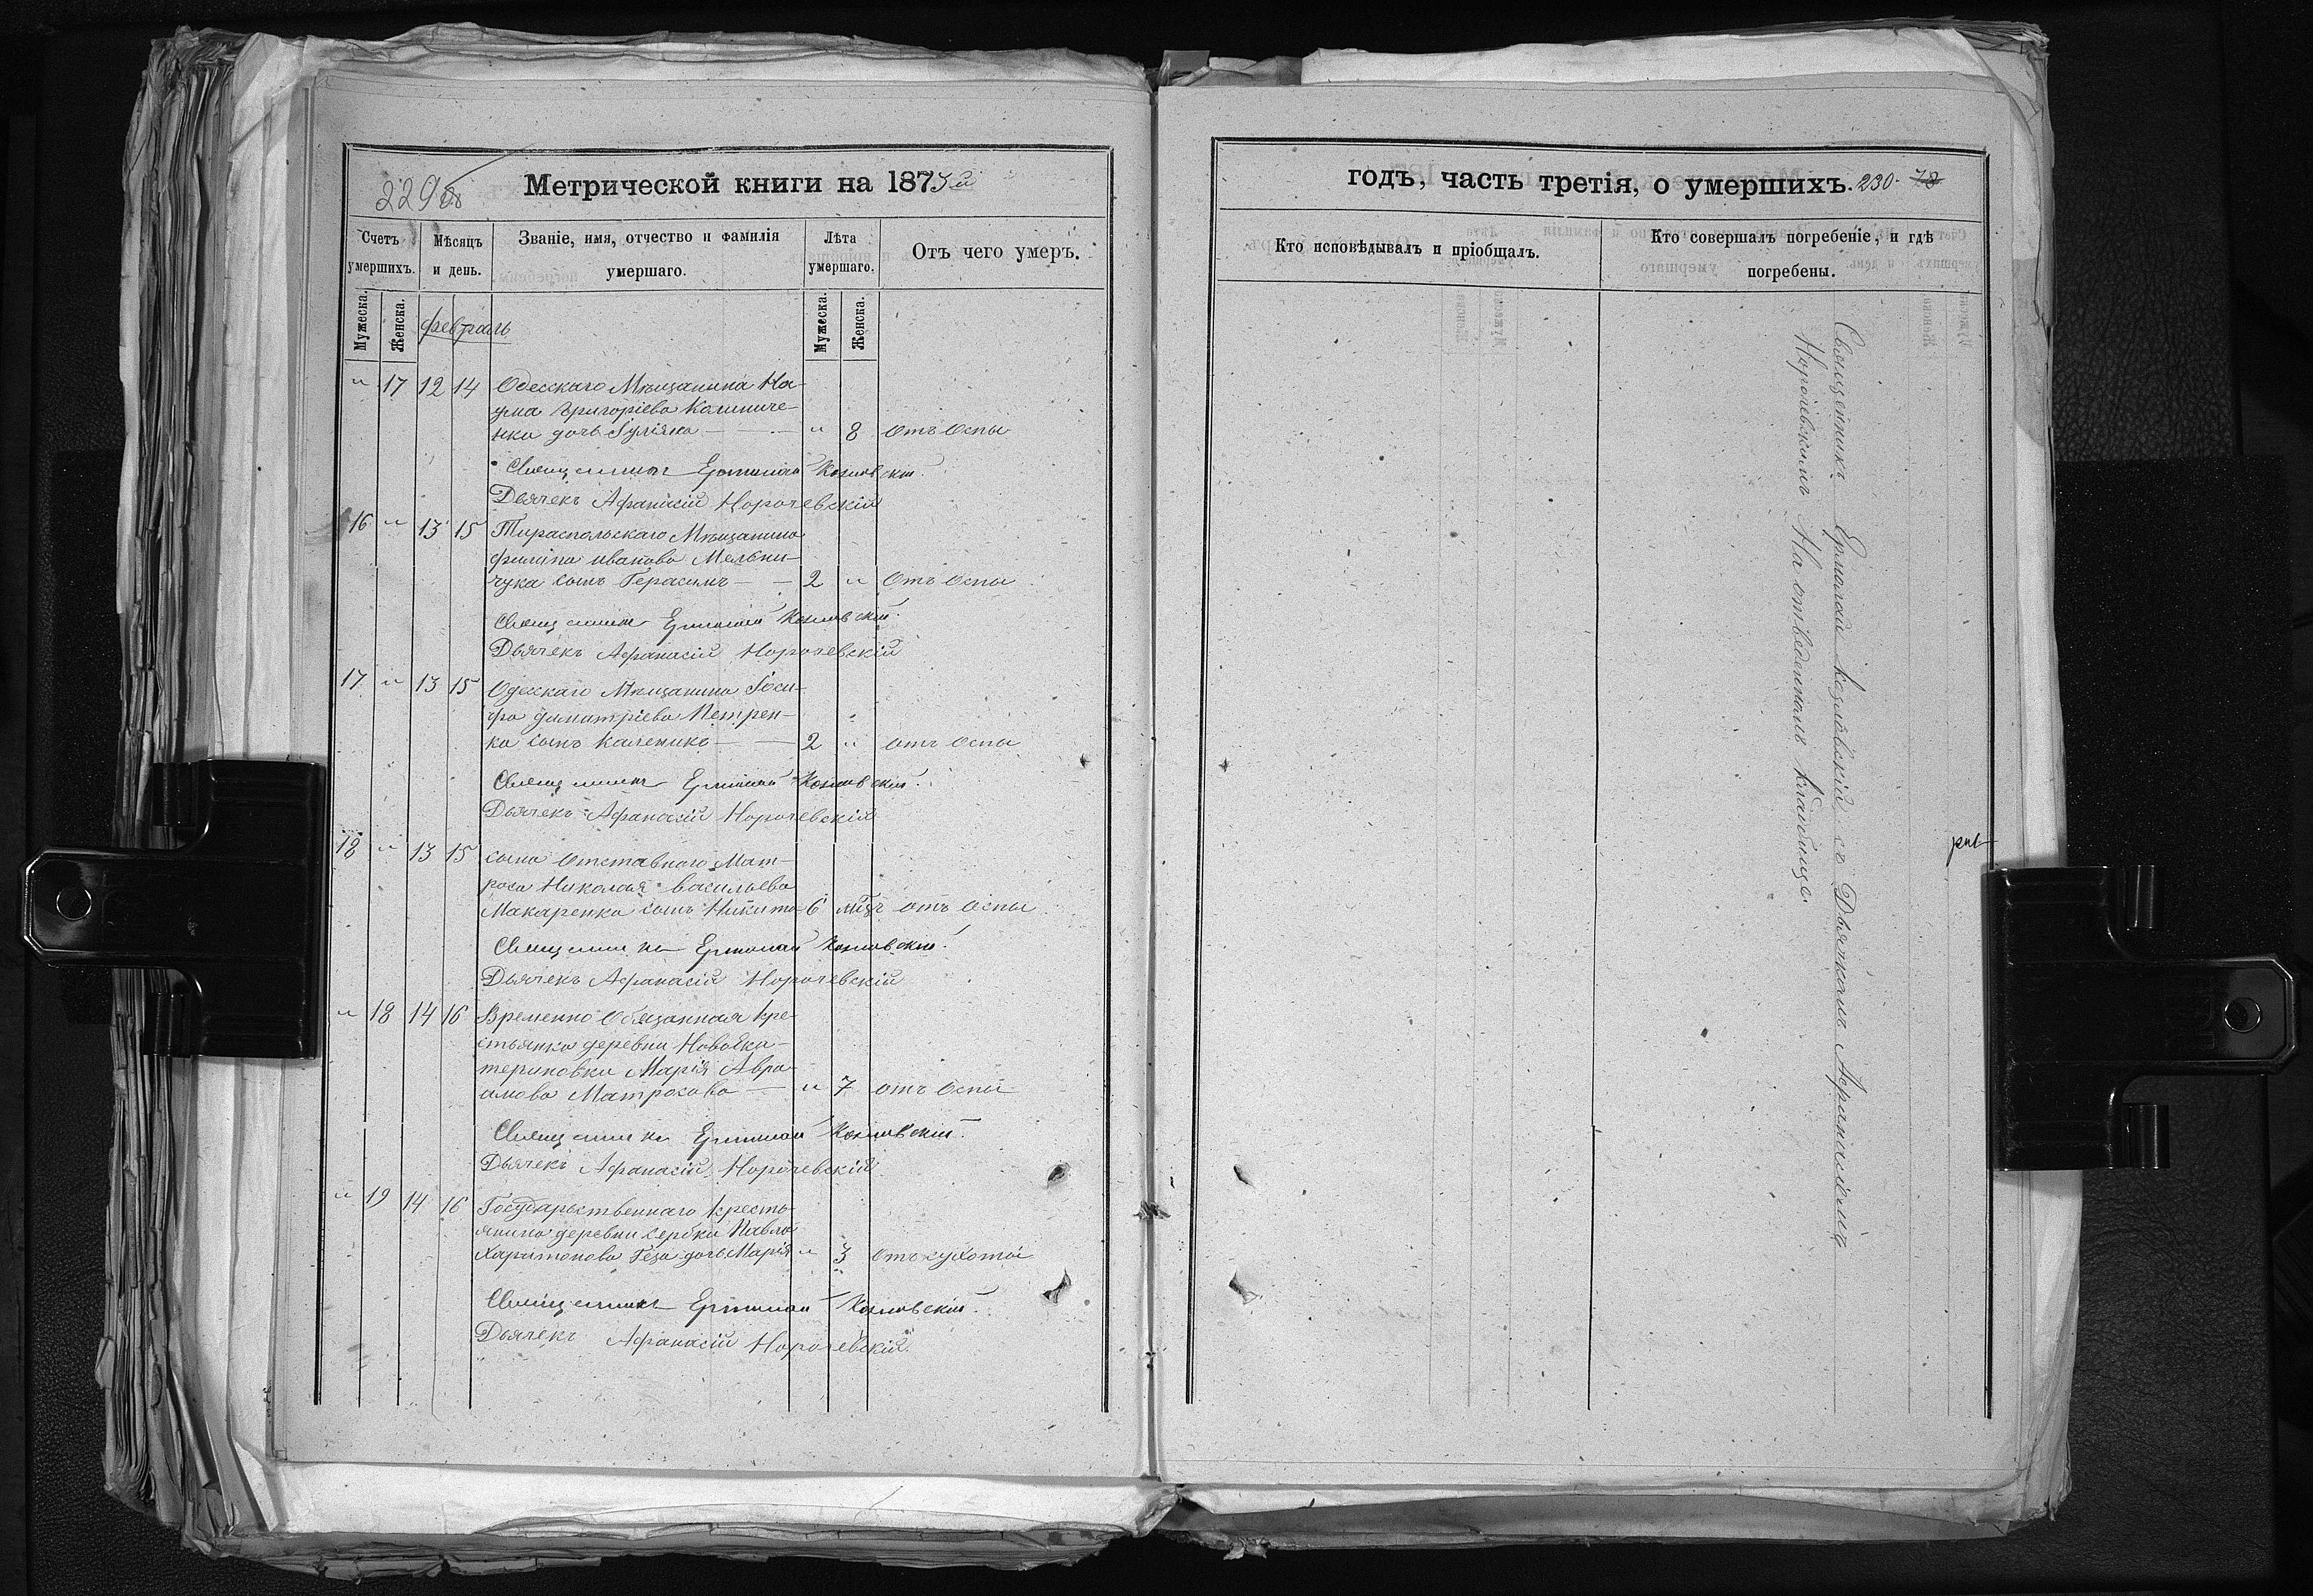 229об
Метрической книги на 1873й
Счетъ умершихъ.
Мѣсяцъ и день.
Званіе, имя, отчество и фамилія умершаго.
Лѣта умершаго.
Отъ чего умеръ.
Мужеска.
Женска.
Февраль
Мужеска.
Женска.
" 17 12 14 Одесскаго Мѣщанина На-
ума Григоріева Калиниче-
нка дочь Іуліяна — " 8 отъ Оспы
Священникъ Ермолай Козловскій.
Дьячекъ Афанасій Норочевскій
16 " 13 15 Тираспольскаго Мѣщанина
Филипа Иванова Мельни-
чука сынъ Герасимъ — 2 " Отъ Оспы
Священникъ Ермолай Козловскій.
Дьячекъ Афанасій Норочевскій
17 " 13 15 Одесскаго Мѣщанина Іоси-
фа Димитріева Петрен-
ка сынъ Каленикъ — 2 " отъ Оспы
Священникъ Ермолай Козловскій.
Дьячекъ Афанасій Норочевскій
18 " 13 15 сына Отставного Мат-
роса Николая Васильева
Макаренка сынъ Никита 6 мцъ отъ Оспы
Священникъ Ермолай Козловскій.
Дьячекъ Афанасій Норочевскій
" 18 14 16 Временно Обязанная Кре-
стьянка деревни Новоека-
териновки Марія Авра-
амова Матросова — " 7 отъ Оспы
Священникъ Ермолай Козловскій.
Дьячекъ Афанасій Норочевскій
" 19 14 16 Государственнаго Кресть-
янина деревни Сербки Павла
Харитонова Гёза дочь Марія " 3 отъ сухоты
Священникъ Ермолай Козловскій.
Дьячекъ Афанасій Норочевскій.
годъ, часть третія, о умершихъ. 230. 78
Кто исповѣдывалъ и пріобщалъ.
Кто совершалъ погребеніе, и гдѣ погребены.
Священникъ Ермолай Козловскій съ Дьячкомъ Афанасіемъ
Норочевскимъ На отведенномъ кладбище.